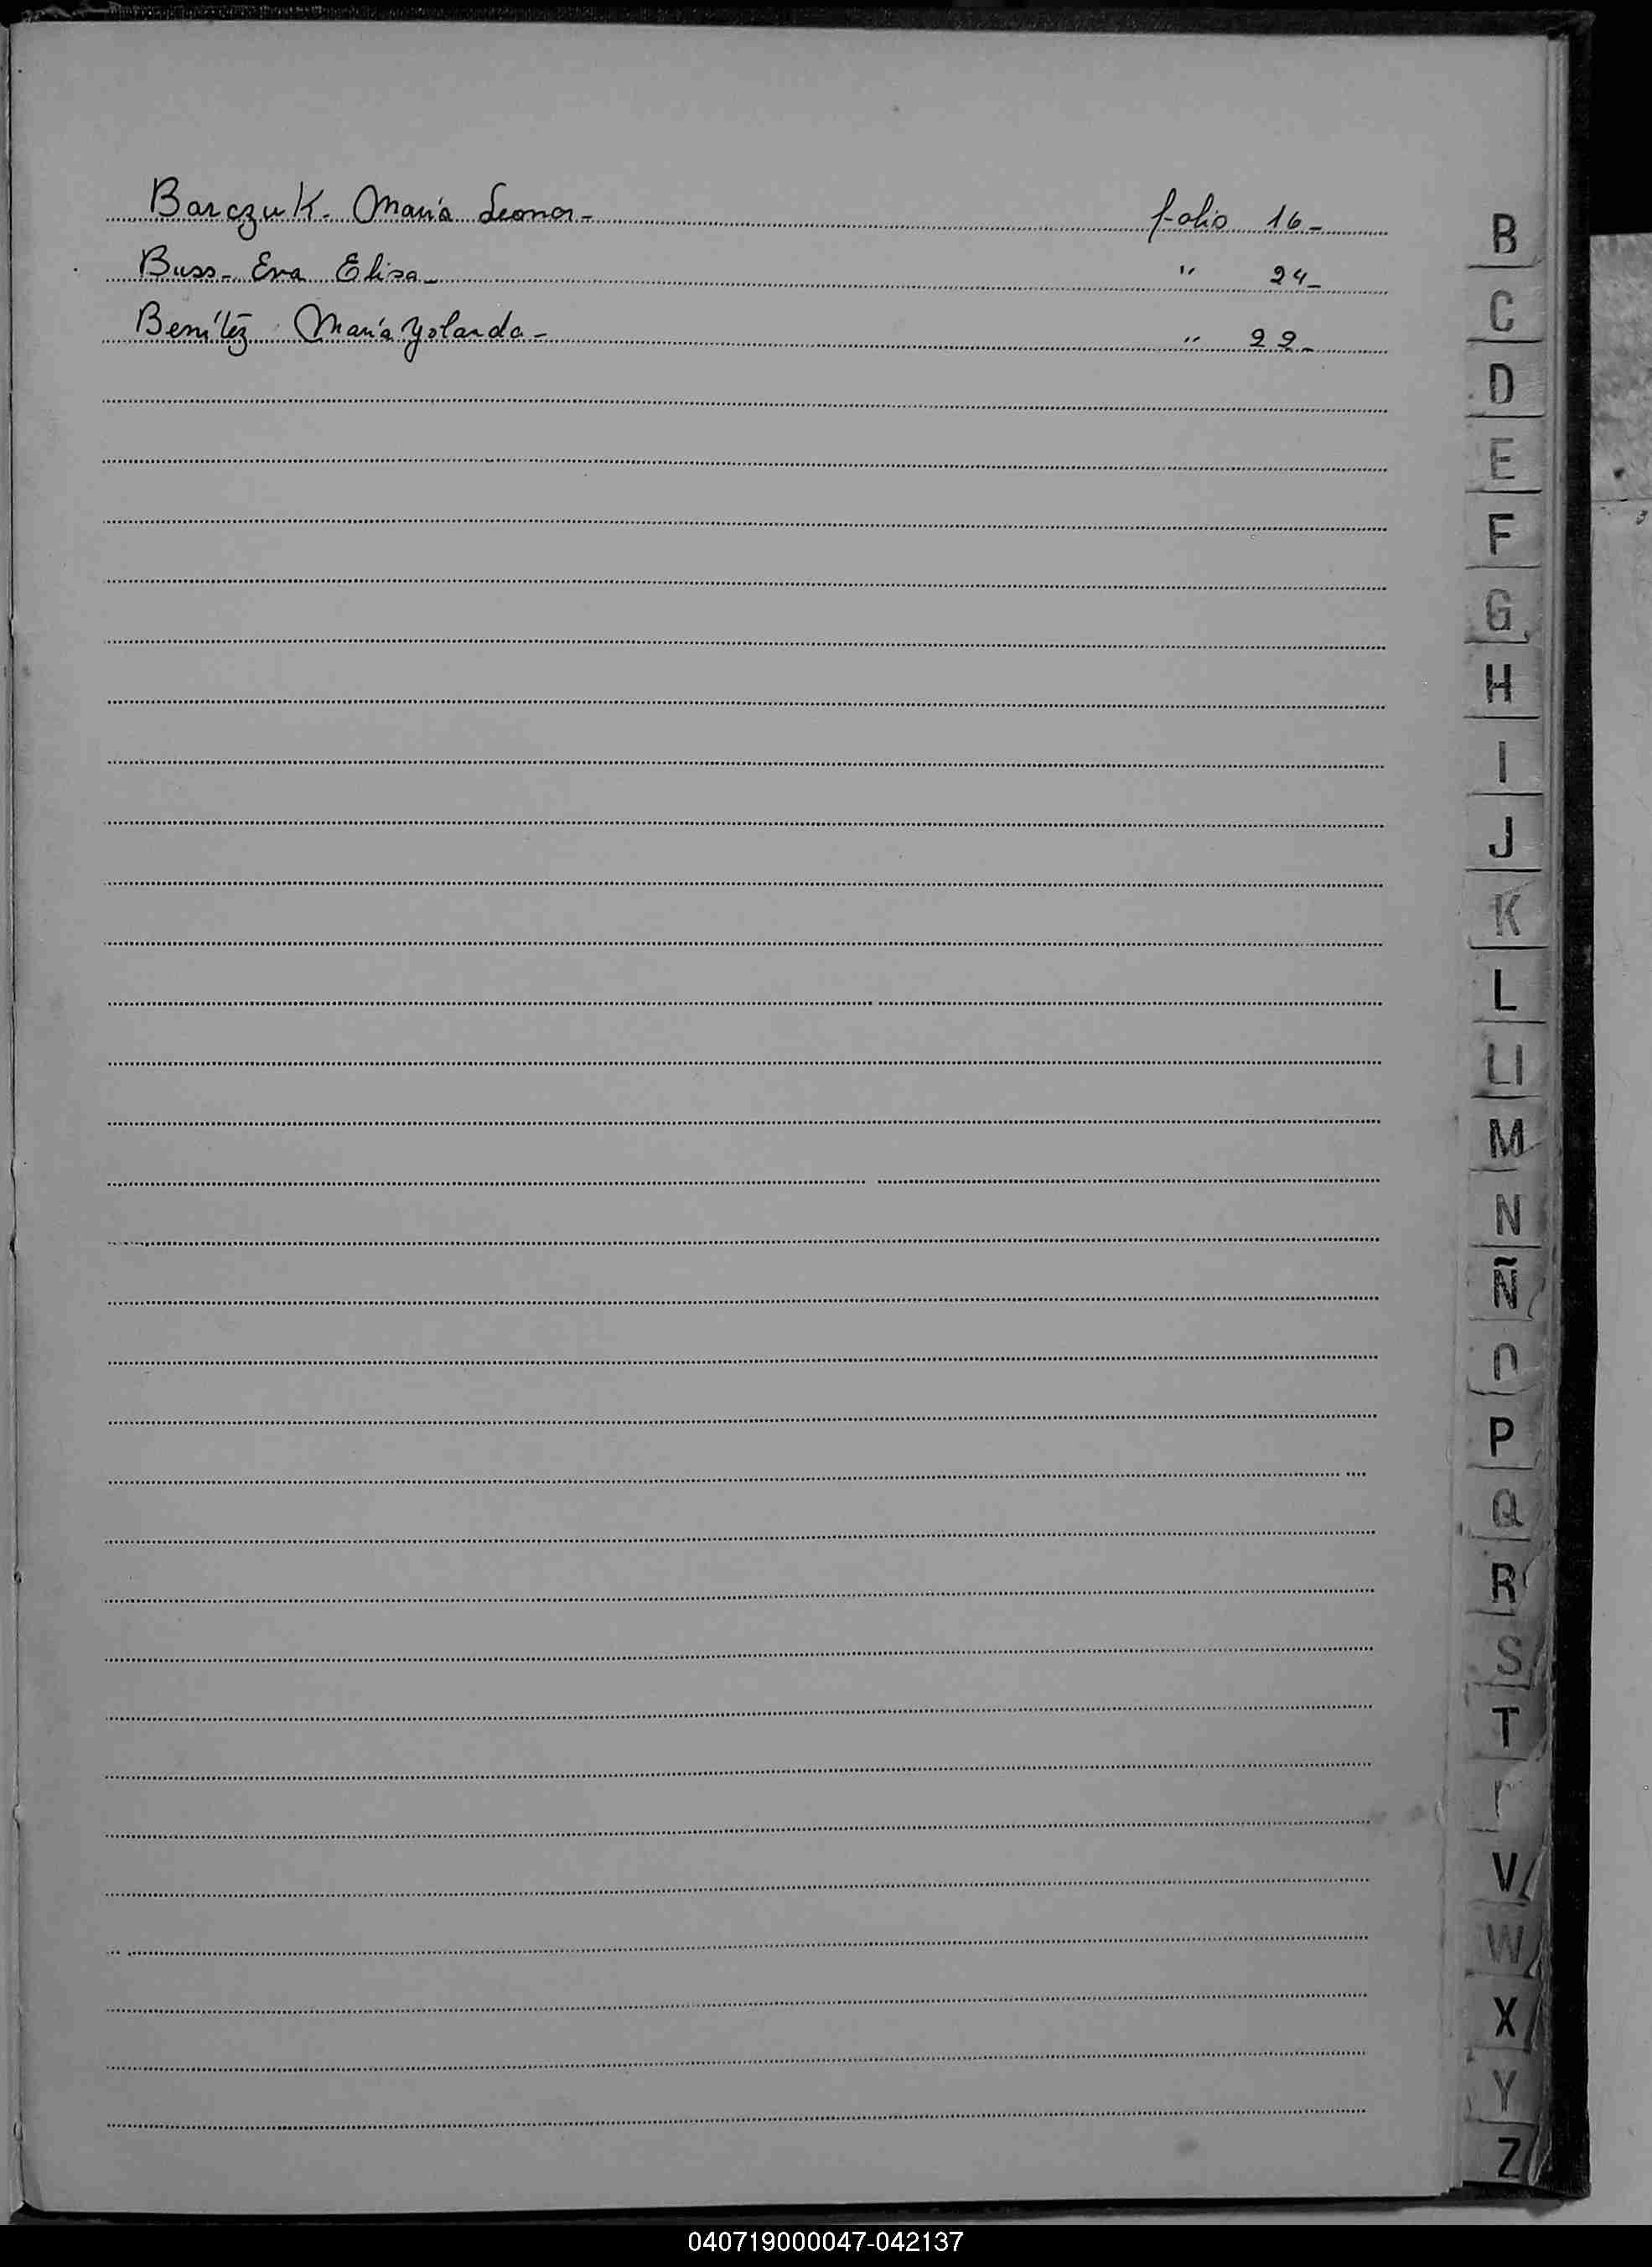 Barczuk - María Leonor - folio 16 -
Buss - Eva Elisa - " 24 -
Benítez María Yolanda - " 22 -
B
C
D
E
F
G
H
I
J
K
L
Ll
M
N
Ñ
O
P
Q
R
S
T
V
W
X
Y
Z
040719000047-042137